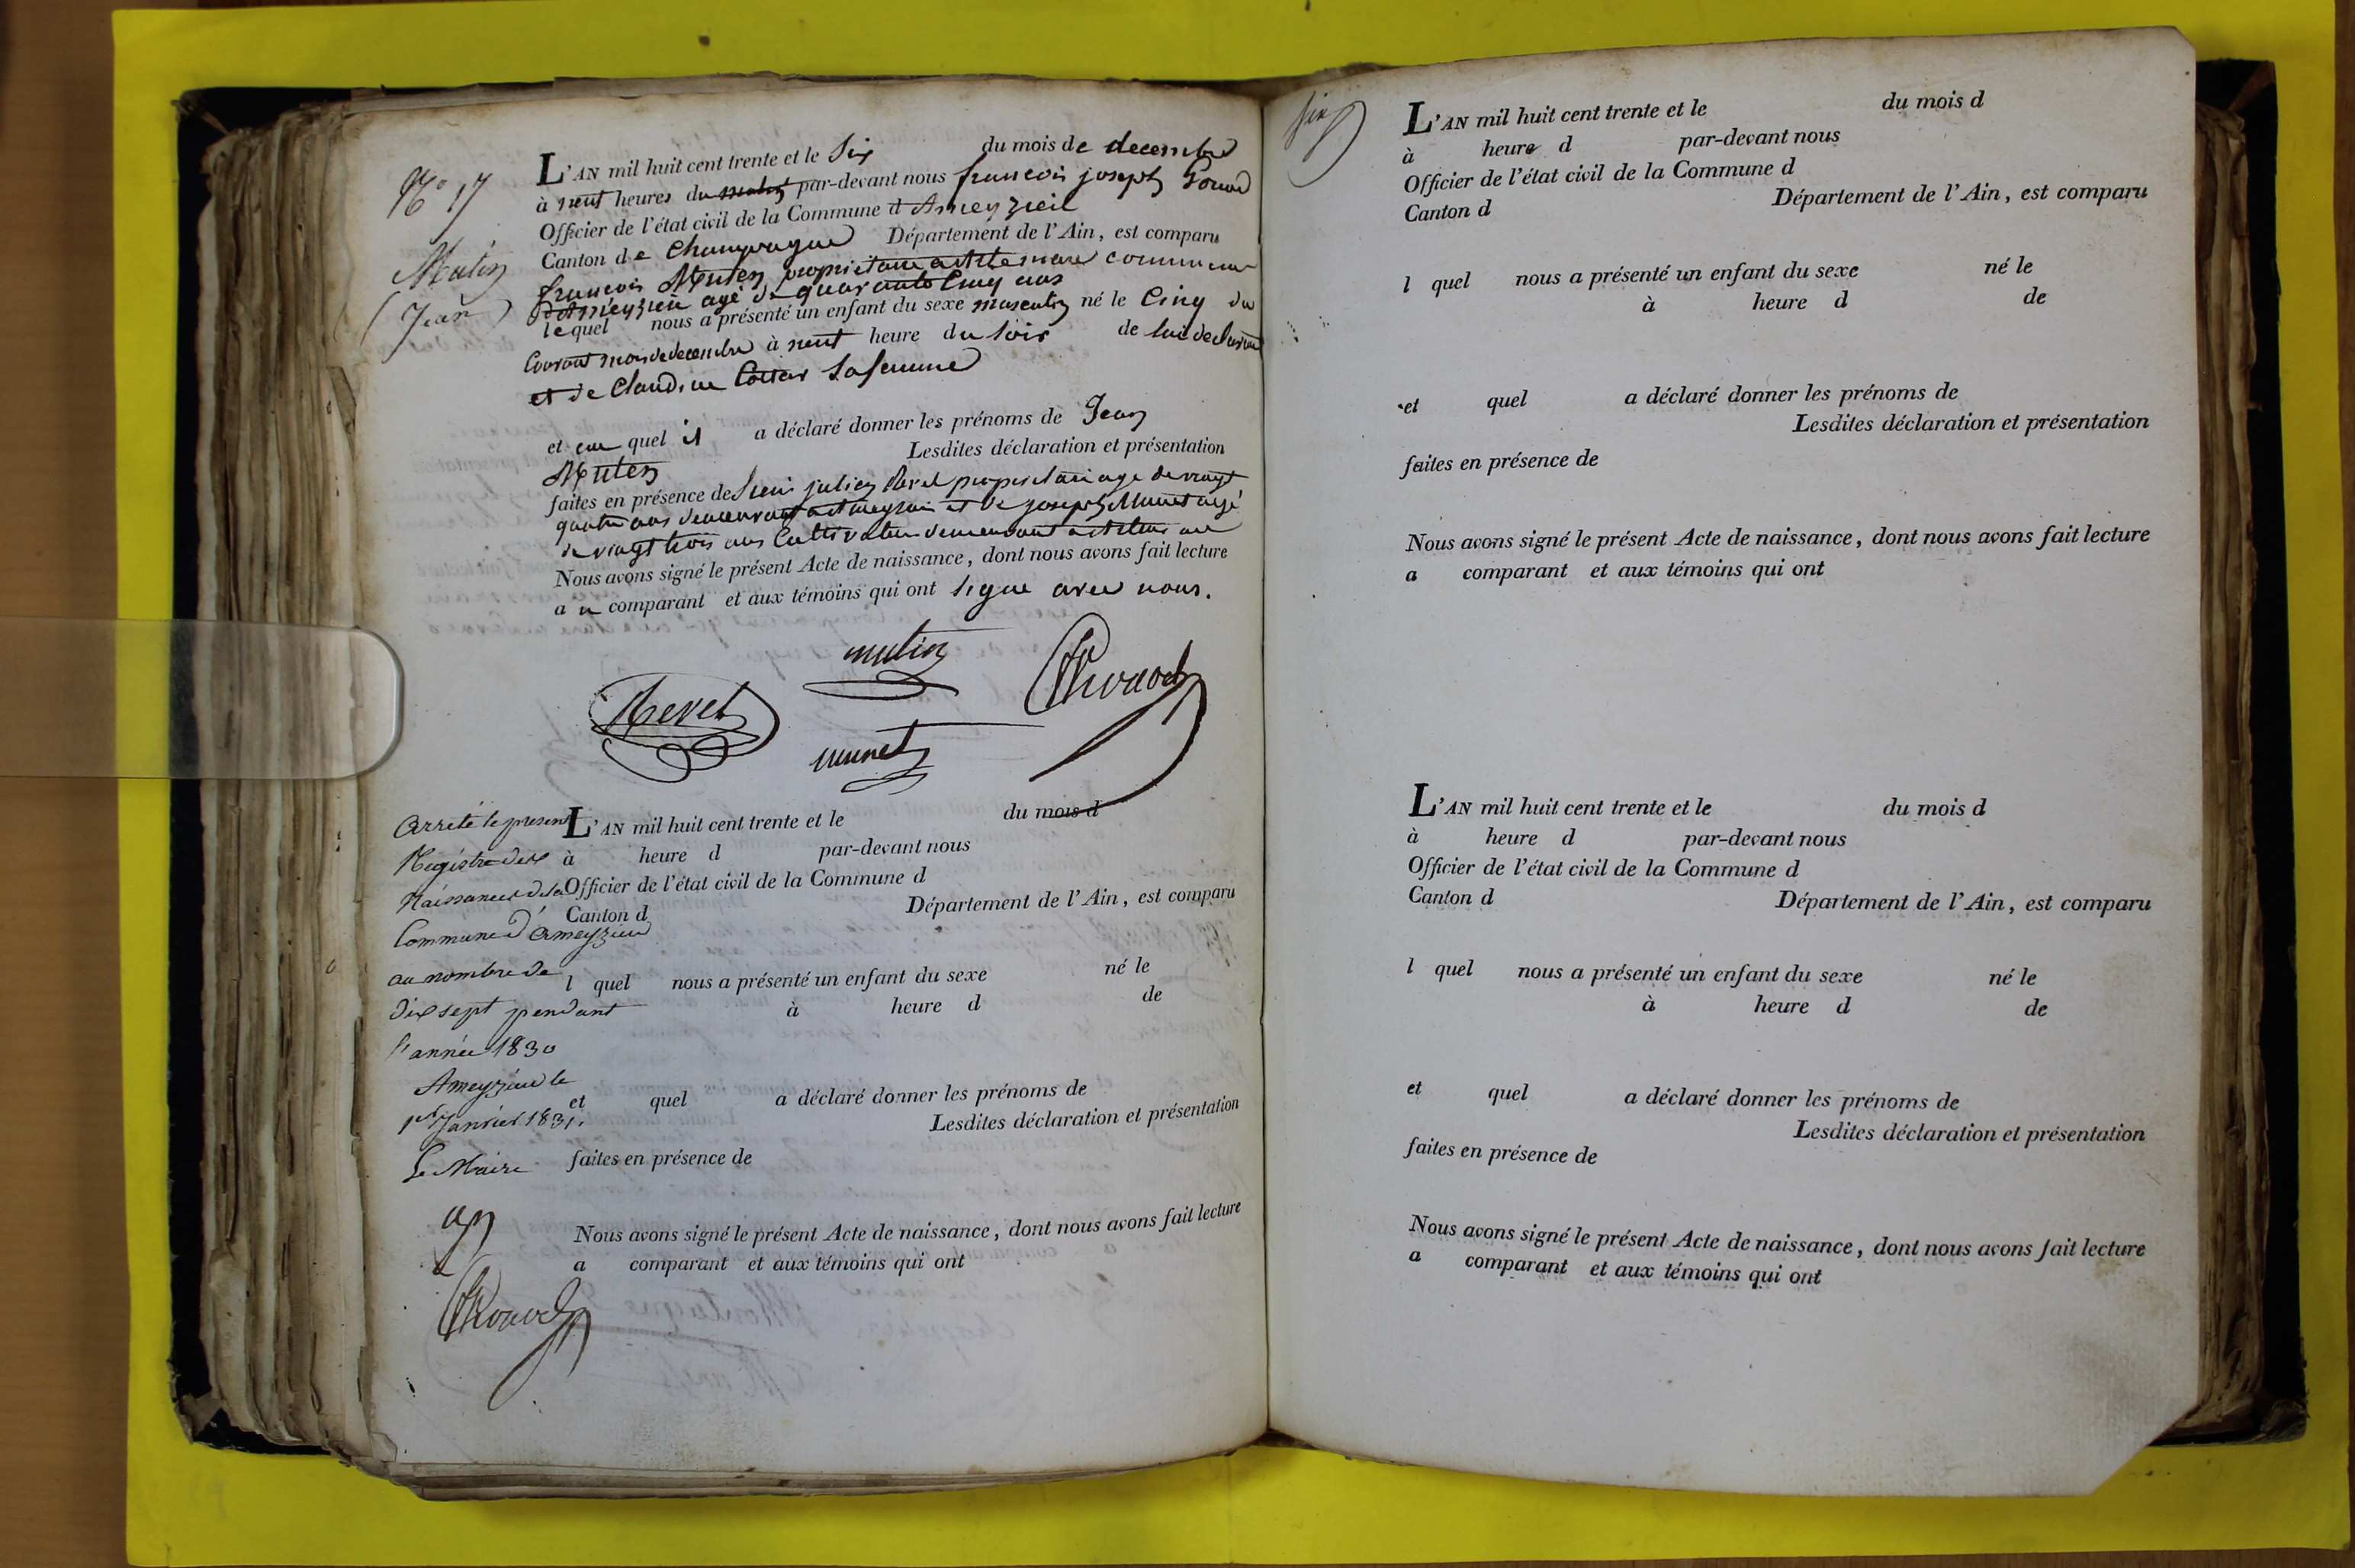 N° 17
Mutin
(Jean)
L'AN mil huit cent trente et le Six du mois de decembre
à neuf heures du matin par-devant nous francois joseph
Officier de l'état civil de la Commune d Ameyzieu
Canton de Champagne Département de l'Ain, est comparu
francois Muten propriétaire commune
d'Ameyzieu agé de quarante Cinq ans
lequel nous a présenté un enfant du sexe masculin né le Cinq du
Courant mois de decembre à neuf heure du soir de lui declarant
et de Claudine sa femme
et quel il a déclaré donner les prénoms de Jean
Muten Lesdites déclaration et présentation
faites en présence de julien Revel propriétaire age de vingt
quatre ans demeurant a Ameyzieu et de joseph Munet agé
de vingt trois ans Cultivateur demeurant
Nous avons signé le présent Acte de naissance, dont nous avons fait lecture
au comparant et aux témoins qui ont signé avec nous.
mutin
Revel
munet
Arrêté le présent
Registre des
Naissances de la
Commune d'Ameyzieu
au nombre de
dix sept pendant
l'année 1830
Ameyzieu le
1er Janvier 1831.
Le Maire
L'AN mil huit cent trente et le du mois d
à heure d par-devant nous
Officier de l'état civil de la Commune d
Canton d Département de l'Ain, est comparu
l quel nous a présenté un enfant du sexe né le
à heure d de
et quel a déclaré donner les prénoms de
Lesdites déclaration et présentation
faites en présence de
Nous avons signé le présent Acte de naissance, dont nous avons fait lecture
a comparant et aux témoins qui ont
L'AN mil huit cent trente et le du mois d
à heure d par-devant nous
Officier de l'état civil de la Commune d
Canton d Département de l'Ain, est comparu
l quel nous a présenté un enfant du sexe né le
à heure d de
et quel a déclaré donner les prénoms de
Lesdites déclaration et présentation
faites en présence de
Nous avons signé le présent Acte de naissance, dont nous avons fait lecture
a comparant et aux témoins qui ont
L'AN mil huit cent trente et le du mois d
à heure d par-devant nous
Officier de l'état civil de la Commune d
Canton d Département de l'Ain, est comparu
l quel nous a présenté un enfant du sexe né le
à heure d de
et quel a déclaré donner les prénoms de
Lesdites déclaration et présentation
faites en présence de
Nous avons signé le présent Acte de naissance, dont nous avons fait lecture
a comparant et aux témoins qui ont